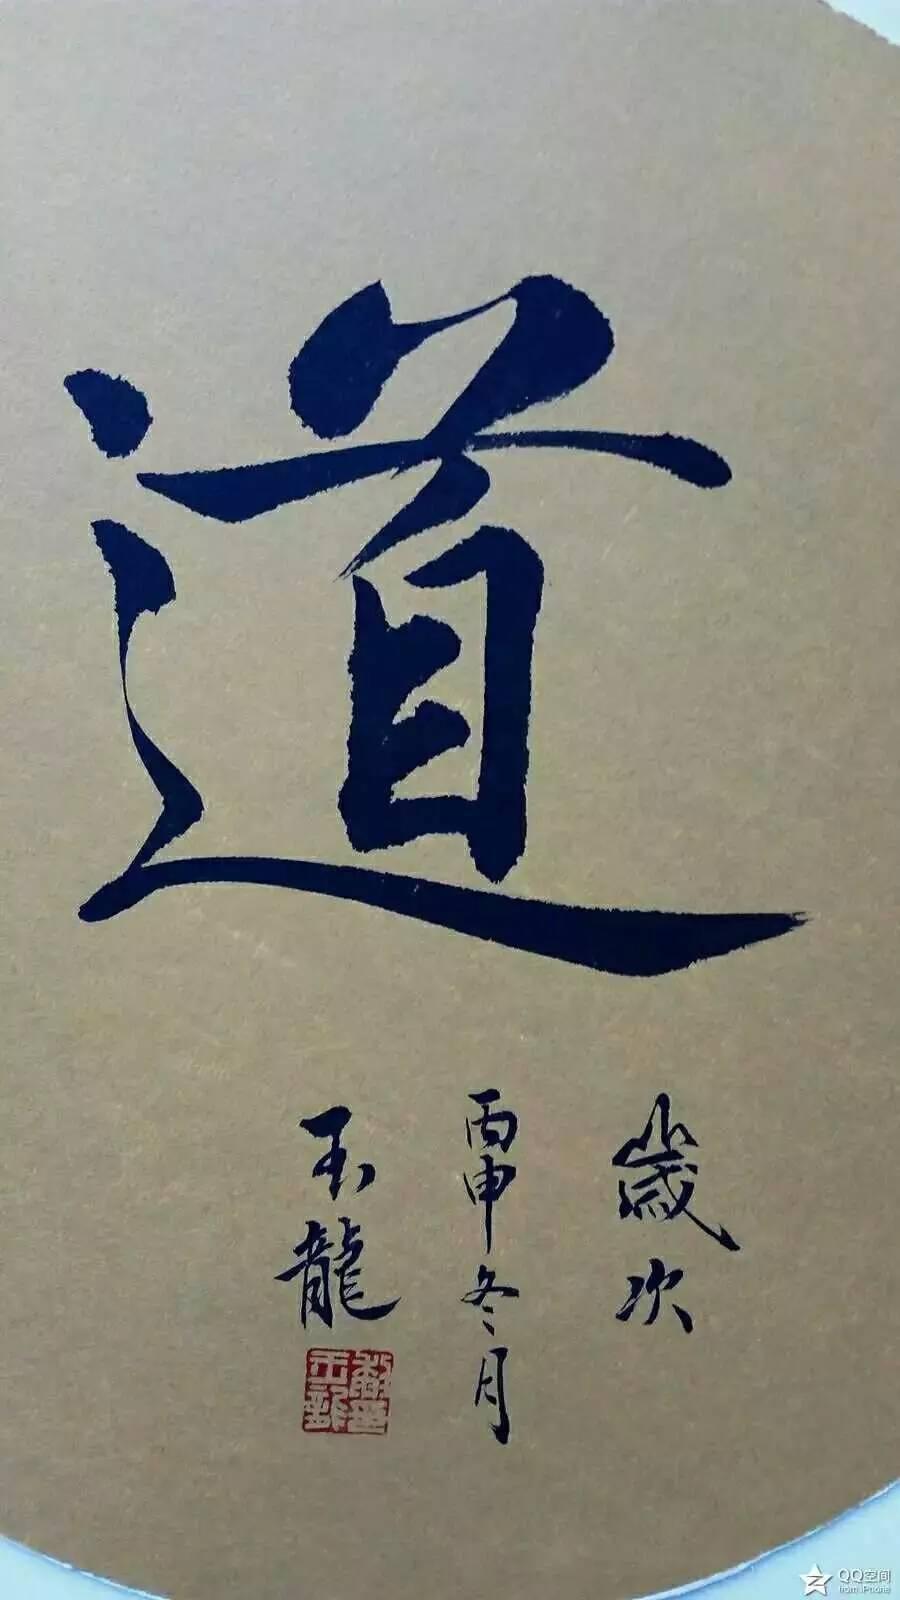 道
歲次
丙申冬月
玉龍
QQ空间
from iPhone